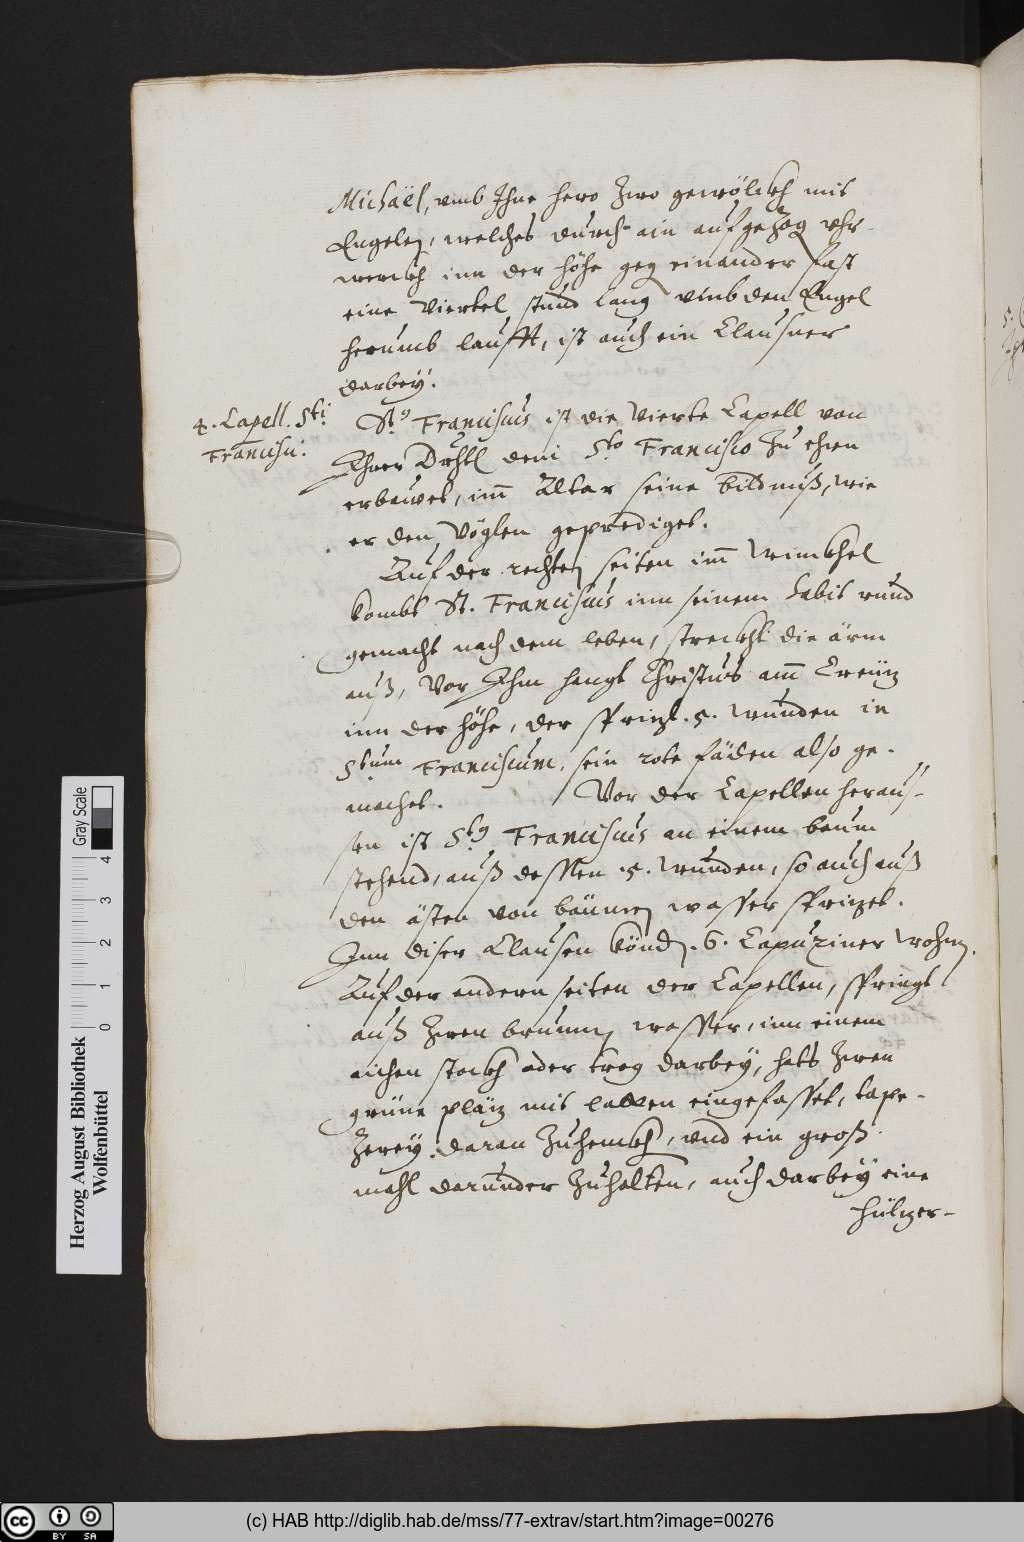 Michaël, vmb Ihne hero Zwo gewölckh mit
Engelen, welches durch ain aufgezog Vhr-
werckh inn der höhe geg einander fast
eine Viertel stund lang vmb den Engel
herumb laufft, ist auch ein Clausner
darbey.
4. Capell. Sti
Francisci.
St. Franciscus ist die Vierte Capell von
Ihrer Drhtl dem Sto Francisco Zu ehren
erbawet, im Altar seine bildnuß, wie
er den Vöglen geprediget.
Auf der rechten seiten im Winckhel
kombt St. Franciscus inn seinem habit rund
gemacht nach dem leben, streckht die ärm
auß, Vor Ihm hangt Christus am Creütz
inn der höhe, der sprizt .5. wunden in
Stum Franciscum, sein rote fäden also ge-
machet. Vor der Capellen heraus-
sen ist Sts Franciscus an einem baum
stehend, auß dessen .5. wunden, so auch auß
den ästen von bäumen wasser sprizet.
Inn diser Clausen könden .6. Capuziner wohnen.
Auf der andern seiten der Capellen, springt
auß Zwen brunnen wasser, inn einem
aichen stockh oder trog darbey, hats Zwen
grüne pläz mit latten eingefasset, tape-
Zerey daran Zuhenckhen, vnd ein groß
mahl darunder Zuhalten, auch darbeÿ eine
hülzer-
Herzog August Bibliothek
Wolfenbüttel
Gray Scale
0 1 2 3 4
(c) HAB http://diglib.hab.de/mss/77-extrav/start.htm?image=00276
cc BY SA